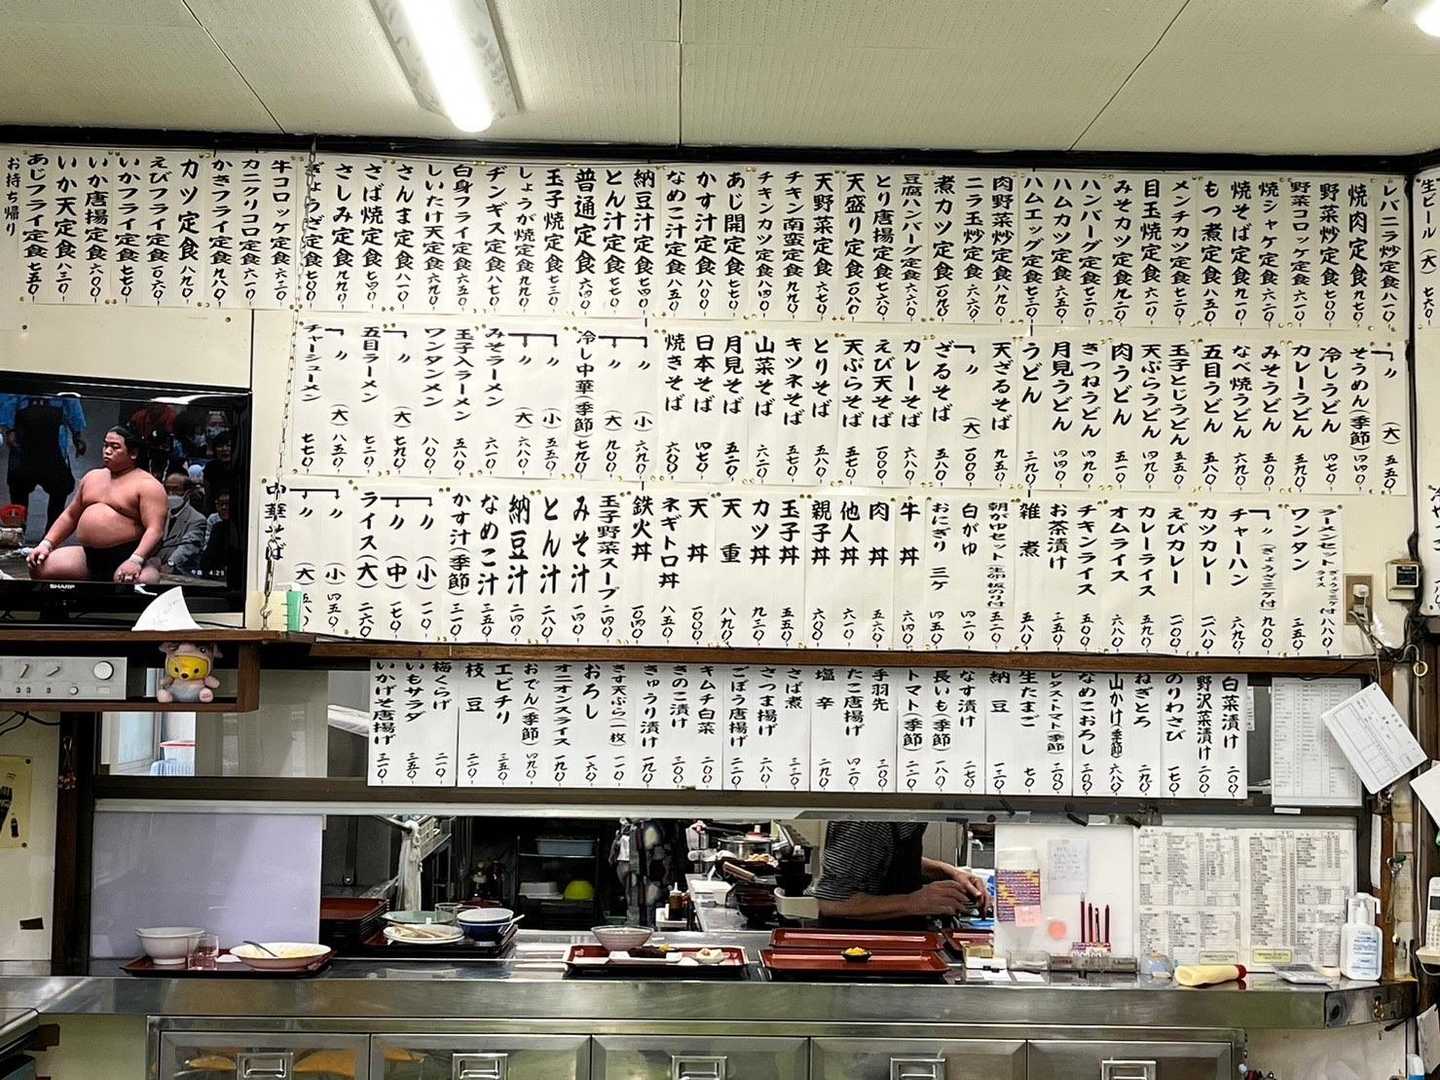 生ビール(大) 七六〇
レバニラ炒定食 八一〇
焼肉定食 九七〇
野菜炒定食 七七〇
野菜コロッケ定食 六二〇
焼シャケ定食 六二〇
焼そば定食 九一〇
もつ煮定食 八五〇
メンチカツ定食 七二〇
目玉焼定食 六一〇
みそカツ定食 九二〇
ハンバーグ定食 七二〇
ハムカツ定食 六五〇
ハムエッグ定食 七三〇
肉野菜炒定食 八九〇
ニラ玉炒定食 六六〇
煮カツ定食 一〇九〇
豆腐ハンバーグ定食 六六〇
とり唐揚定食 七六〇
天盛り定食 一〇八〇
天野菜定食 六七〇
チキン南蛮定食 九九〇
チキンカツ定食 八四〇
あじ開定食 七七〇
かす汁定食 八〇〇
なめこ汁定食 八五〇
納豆汁定食 七四〇
とん汁定食 七七〇
普通定食 六四〇
玉子焼定食 七三〇
しょうが焼定食 九九〇
ヂンギス定食 八七〇
白身フライ定食 六五〇
しいたけ天定食
さんま定食 八一〇
さば焼定食 七四〇
さしみ定食 九九〇
ぎょうざ定食 七〇〇
牛コロッケ定食 六二〇
カニクリコロ定食 六一〇
かきフライ定食 九八〇
カツ定食 八九〇
えびフライ定食 一〇六〇
いかフライ定食 七七〇
いか唐揚定食 六〇〇
いか天定食 八二〇
あじフライ定食 七五〇
お持ち帰り
〃 (大) 五五〇
そうめん(季節) 四四〇
冷しうどん 四七〇
カレーうどん 五九〇
みそうどん 五〇〇
なべ焼うどん 六九〇
五目うどん 五八〇
玉子とじうどん 五五〇
天ぷらうどん 四九〇
肉うどん 五一〇
きつねうどん 四九〇
月見うどん 四四〇
うどん 三九〇
天ざるそば 九五〇
〃 (大) 一〇〇〇
ざるそば 五八〇
カレーそば 六八〇
えび天そば 一〇〇〇
天ぷらそば 五七〇
とりそば 五八〇
キツネそば 五七〇
山菜そば 六二〇
月見そば 五二〇
日本そば 四七〇
焼きそば 六〇〇
〃 (小) 六九〇
〃 (大) 九〇〇
冷し中華(季節) 七九〇
〃 (小) 五五〇
〃 (大) 六八〇
みそラーメン 六一〇
玉子入ラーメン 五八〇
ワンタンメン 八〇〇
〃 (大) 七九〇
五目ラーメン 七二〇
〃 (大) 八五〇
チャーシューメン 七七〇
ラーメンセット ぎょうざ三ケ付 ライス 八八〇
ワンタン 三五〇
〃 (ぎょうざ三ケ付) 九〇〇
チャーハン 六九〇
カツカレー
えびカレー
カレーライス 五九〇
オムライス 六八〇
チキンライス 五〇〇
お茶漬け 三五〇
雑煮 五八〇
朝がゆセット(生卵・板のり付) 五二〇
白がゆ 四二〇
おにぎり 三ケ 四五〇
牛丼 六四〇
肉丼 五二〇
他人丼 六二〇
親子丼 六〇〇
玉子丼 五五〇
カツ丼 九三〇
天重 八九〇
天丼 一〇〇〇
ネギトロ丼 八五〇
鉄火丼
玉子野菜スープ
みそ汁 一四〇
とん汁 二八〇
納豆汁 二四〇
なめこ汁 三五〇
かす汁(季節) 三一〇
〃 (小) 一一〇
〃 (中) 一七〇
ライス(大) 二六〇
〃 (小) 四五〇
〃 (大) 五八〇
中華そば
白菜漬け 二〇〇
野沢菜漬け 二〇〇
のりわさび 一七〇
ねぎとろ 二九〇
山かけ(季節) 六八〇
なめこおろし 三〇〇
レタストマト(季節) 三〇〇
生たまご 七〇
納豆 一三〇
なす漬け 二七〇
長いも(季節) 一八〇
トマト(季節) 二二〇
手羽先 三〇〇
たこ唐揚げ 四二〇
塩辛 二九〇
さば煮 三三〇
さつま揚げ 二六〇
ごぼう唐揚げ 二二〇
キムチ白菜 二〇〇
きのこ漬け 三〇〇
きゅうり漬け 一九〇
きす天ぷら(一枚) 一一〇
おろし 一六〇
オニオンスライス 一九〇
おでん(季節) 四九〇
エビチリ 三五〇
枝豆 二二〇
梅くらげ 二一〇
いもサラダ 三五〇
いかげそ唐揚げ 三一〇
SHARP